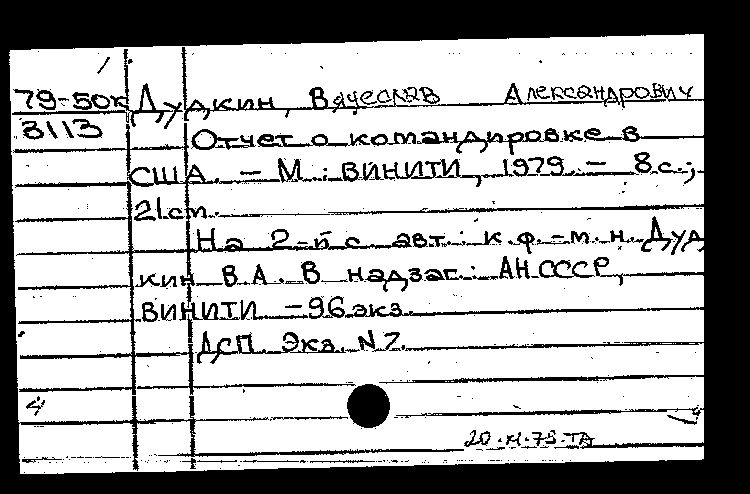 79-50к Дудкин, Вячеслав Александрович
3113 Отчет о командировке в
США. - М.: ВИНИТИ, 1979. - 8 с.;
21 cm.
На 2-й с. авт.: к.ф.-м.н. Дуд
кин В.А. В надзаг.: АН СССР,
ВИНИТИ - 96 экз.
ДСП. Экз. N 7.
4